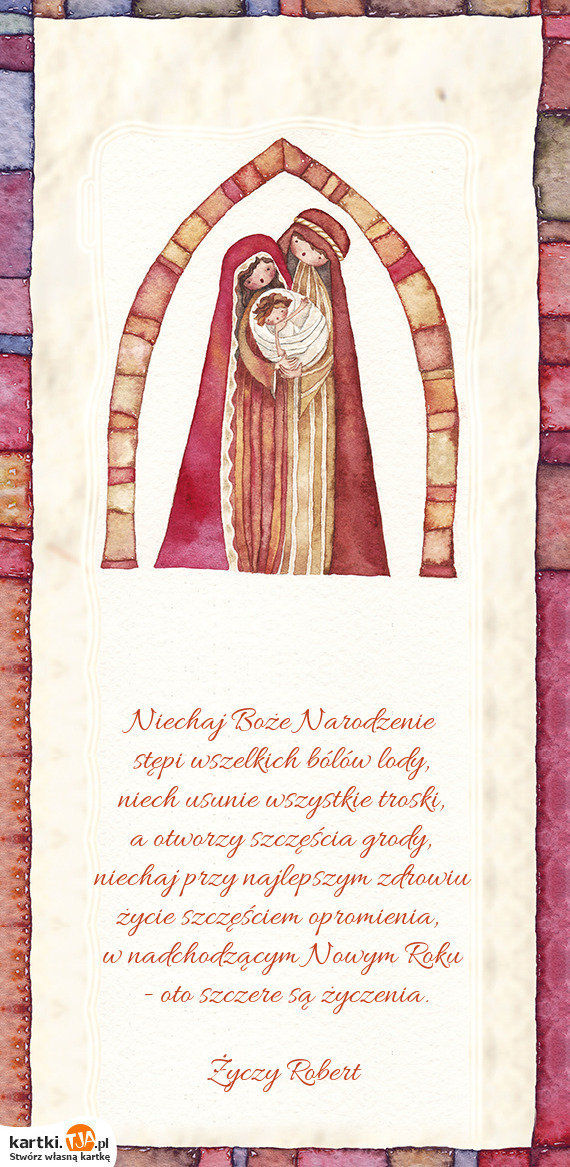 Niechaj Boże Narodzenie
stępi wszelkich bólów lody,
niech usunie wszystkie troski,
a otworzy szczęścia grody,
niechaj przy najlepszym zdrowiu
życie szczęściem opromienia,
w nadchodzącym Nowym Roku
- oto szczere są życzenia.
Życzy Robert
kartki.TJA.pl
Stwórz własną kartkę